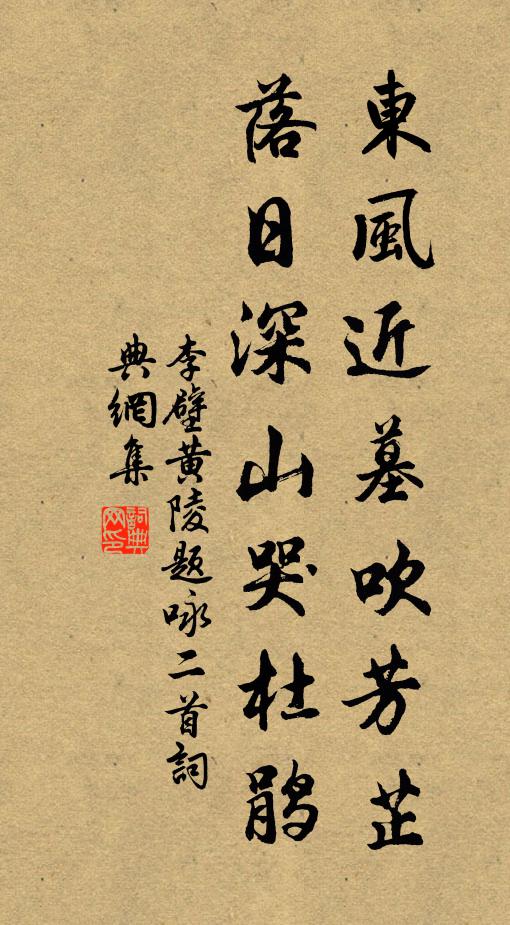 東風近墓吹芳芷
落日深山哭杜鵑
李壁黄陵题咏二首詞
典網集
詞典
网印